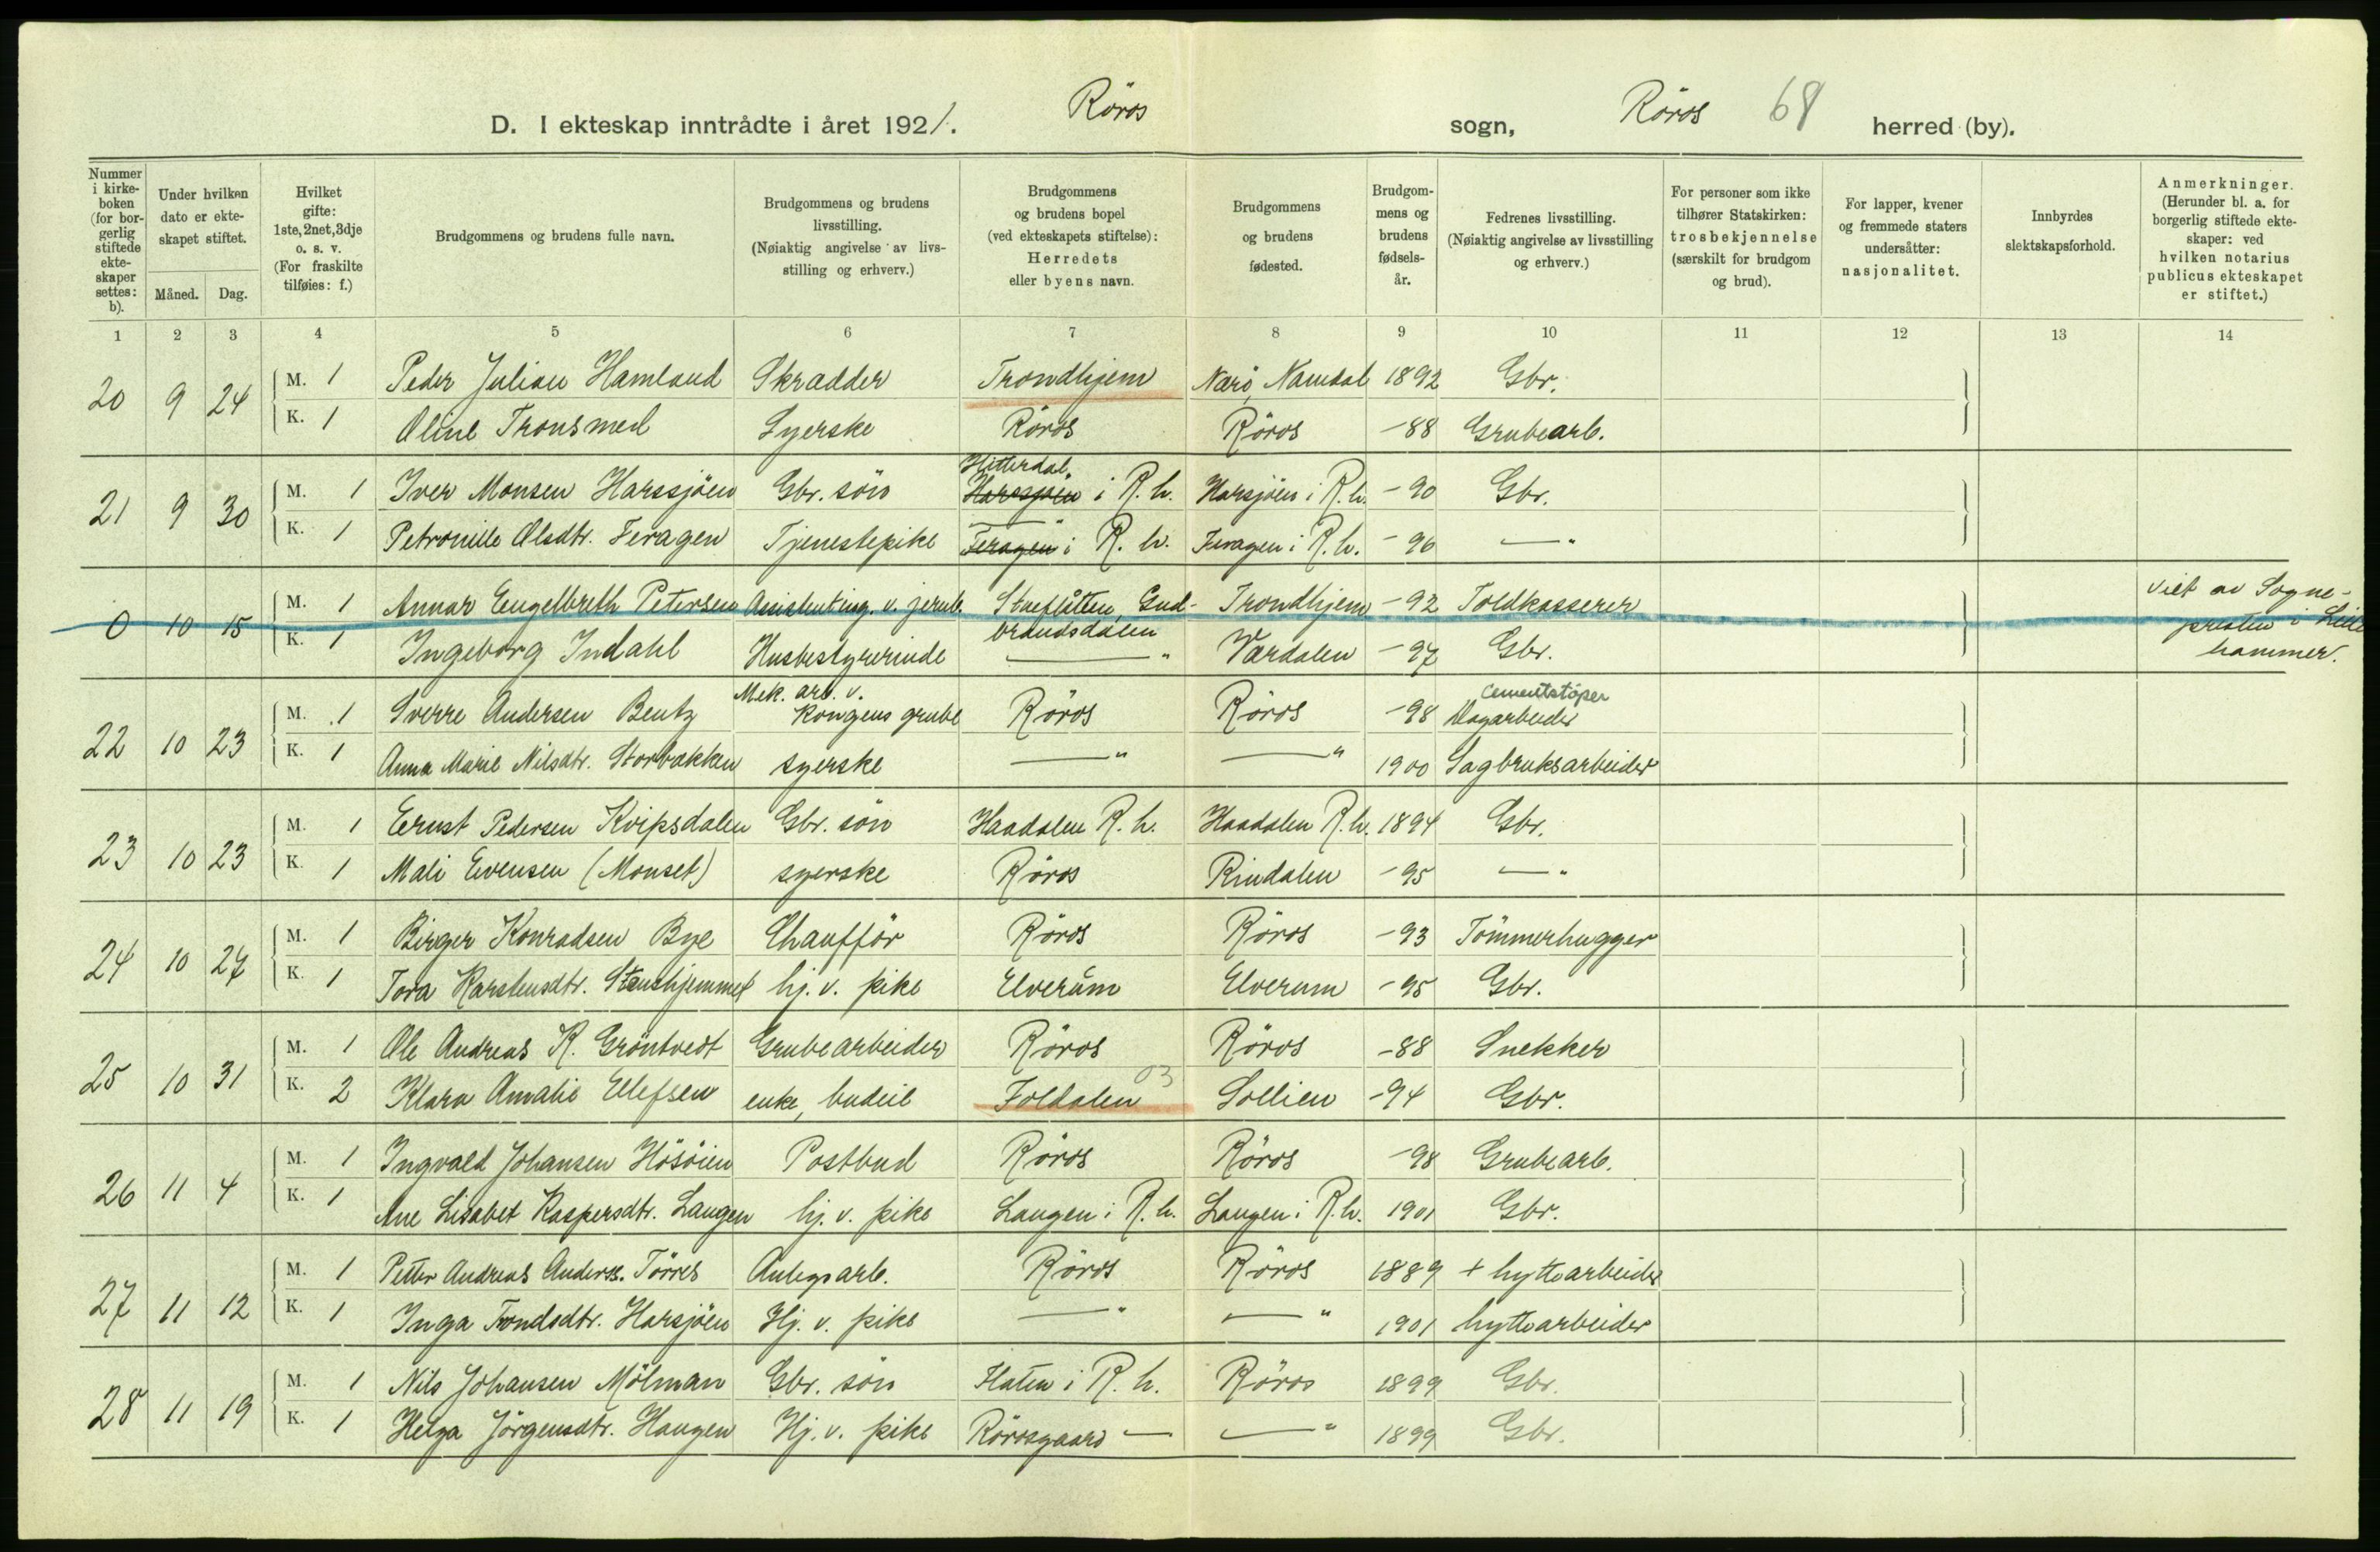 D. I ekteskap inntrådte i året 1921. Röros sogn, Röros 68 herred (by).
Nummer i kirkeboken (for borgerlig stiftede ekteskaper settes: b).
Under hvilken dato er ekteskapet stiftet.
Måned. Dag.
Hvilket gifte: 1ste, 2net, 3dje o. s. v. (For fraskilte tilføies: f.)
Brudgommens og brudens fulle navn.
Brudgommens og brudens livsstilling. (Nøiaktig angivelse av livsstilling og erhverv.)
Brudgommens og brudens bopel (ved ekteskapets stiftelse): Herredets eller byens navn.
Brudgommens og brudens fødested.
Brudgommens og brudens fødselsår.
Fedrenes livsstilling. (Nøiaktig angivelse av livsstilling og erhverv.)
For personer som ikke tilhører Statskirken: trosbekjennelse (særskilt for brudgom og brud).
For lapper, kvener og fremmede staters undersåtter: nasjonalitet.
Innbyrdes slektskapsforhold.
Anmerkninger. (Herunder bl. a. for borgerlig stiftede ekteskaper: ved hvilken notarius publicus ekteskapet er stiftet.)
1 2 3 4 5 6 7 8 9 10 11 12 13 14
20 9 24 M. 1 Peder Julian Hamland Skrædder Trondhjem Nærö, Namdal 1892 Gbr.
K. 1 Oline Tronsmed Syerske Röros Röros -88 Grubearb.
21 9 30 M. 1 Iver Monsen Harssjöen Gbr. sön Hitterdal Harssjöen i R. h. Harsjöen i R. h. -90 Gbr.
K. 1 Petronille Olsdtr. Feragen Tjenestepike Feragen i R. h. Feragen i R. h. -96 — "
0 10 15 M. 1 Annar Engelbreth Petersen Assistenting. v. jernb. Stueflåtten, Gud- Trondhjem -92 Toldkasserer viet av Sogne-
K. 1 Ingeborg Indahl Husbestyrerinde brandsdalen — " Værdalen -97 Gbr. presten i Lille
hammer.
22 10 23 M. 1 Sverre Andersen Bentz Mek. arb. v. Kongens grube Röros Röros -98 Cementstöper Dagarbeider
K. 1 Anna Marie Nilsdtr. Storbækken syerske — " — " 1900 Sagbruksarbeider
23 10 23 M. 1 Ernst Pedersen Kvipsdalen Gbr. sön Haadalen R. h. Haadalen R. h. 1894 Gbr.
K. 1 Mali Evensen (Monset) syerske Röros Rindalen -95 — "
24 10 27 M. 1 Birger Konradsen Bye Chaufför Röros Röros -93 Tömmerhugger
K. 1 Tora Karstensdtr. Stenshjemmet hj. v. pike Elverum Elverum -95 Gbr.
25 10 31 M. 1 Ole Andreas K. Gröntvedt Grubearbeider Röros Röros -88 Snekker
K. 2 Klara Amalie Ellefsen enke, budeie Foldalen 03 Sollien -94 Gbr.
26 11 4 M. 1 Ingvald Johansen Hösöien Postbud Röros Röros -98 Grubearb.
K. 1 Ane Lisabet Kaspersdtr. Langen hj. v. pike Langen i R. h. Langen i R. h. 1901 Gbr.
27 11 12 M. 1 Petter Andreas Anders. Törres Anlegsarb. Röros Röros 1889 + hyttearbeider
K. 1 Inga Trondsdtr. Harsjöen Hj. v. pike — " — " 1901 hyttearbeider
28 11 19 M. 1 Nils Johansen Mölman Gbr. sön Flaten i R. h. Röros 1899 Gbr.
K. 1 Helga Jörgensdtr. Haugen Hj. v. pike Rörosgaard — — " 1899 Gbr.